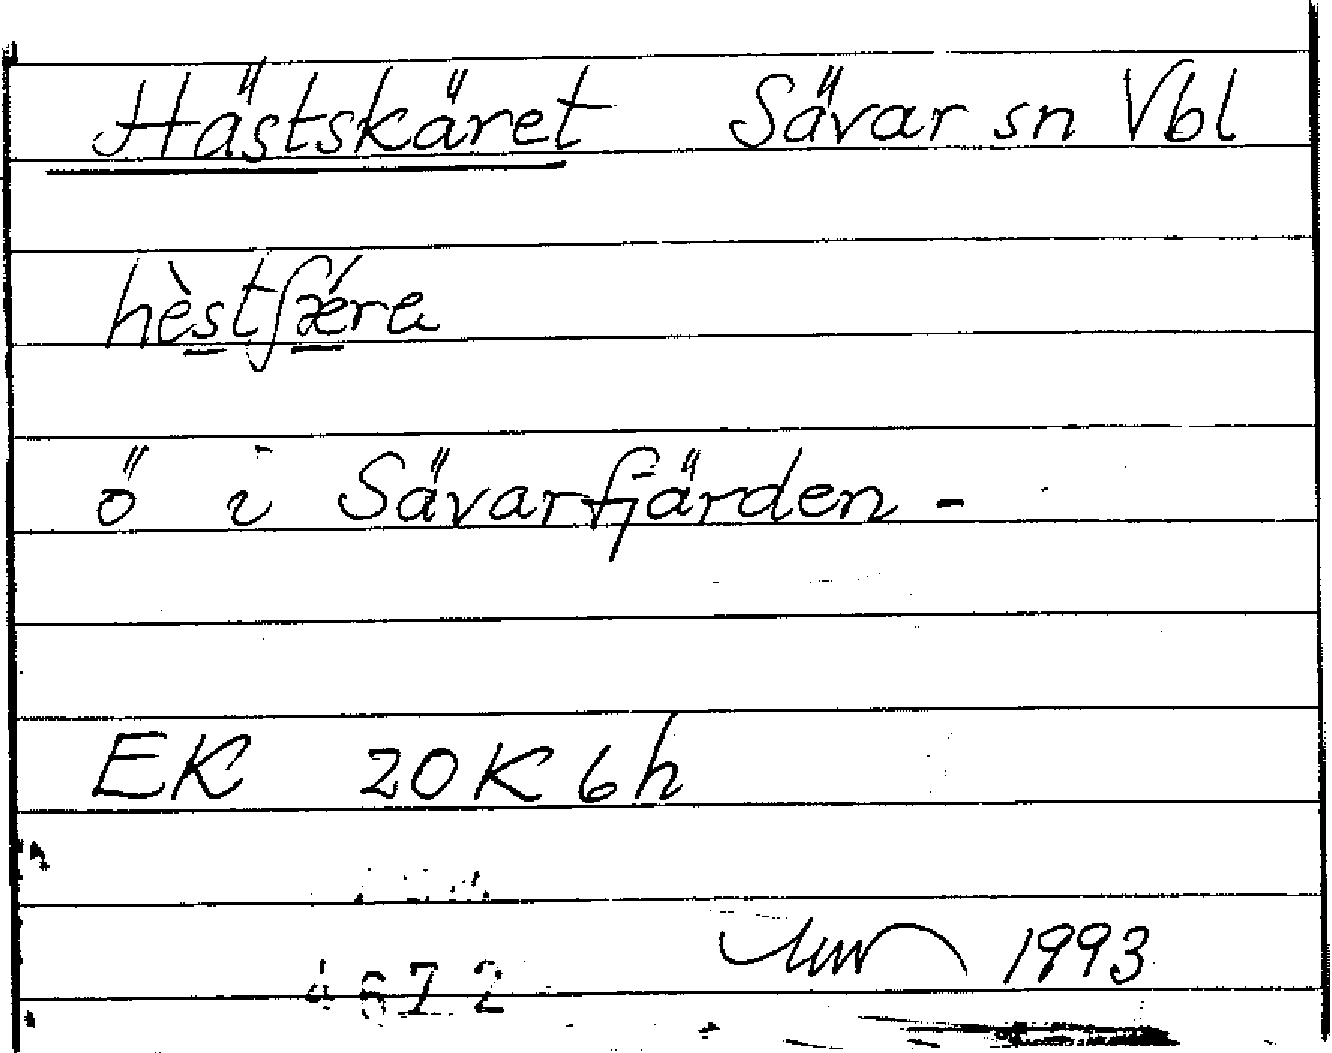 Hästskäret Sävar sn Vbl
hèstʃǽra
ö i Sävarfjärden -
EK 20K6h
1993
4672